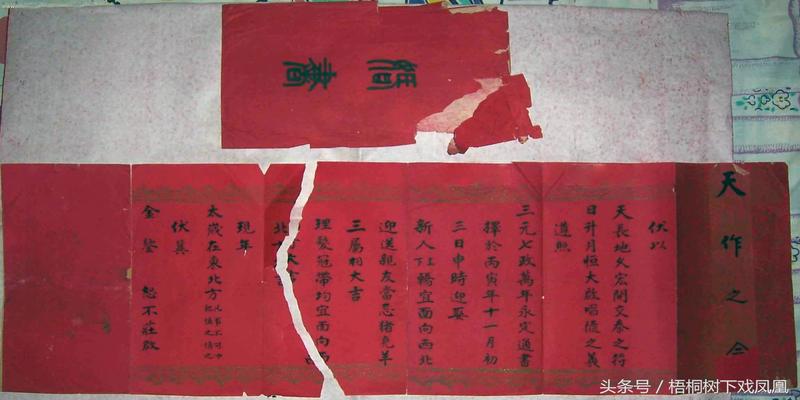 簡書
天作之合
伏以
天長地久宏開交泰之符
日升月恒大啟唱隨之義
遵照
三元七政萬年永定通書
擇於丙寅年十一月初
三日申時迎娶
新人下上轎宜面向西北
迎送親友當忌豬兔羊
三屬相大吉
理髮冠帶均宜面向西
北
現年
太歲在東北方
慎之慎之
伏冀
金鑒 恕不莊啟
头条号／梧桐树下戏凤凰